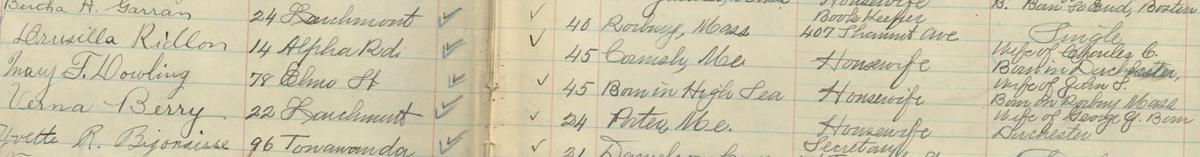 Bertha A. Garran 24 Larchmont
Drusilla Ridlon 14 Alpha Rd. 40 Roxbury, Mass Book keeper 407 Shawmut Ave Single
Mary F. Dowling 78 Elmo St 45 Cornish, Me. Housewife Wife of Charles C. Born in Dorchester,
Verna Berry 22 Larchmont 45 Born in High Sea Housewife Wife of John F. Born in Roxbury Mass
Yvette R. Bijonaisse 96 Tonawanda 24 Porter, Me. Housewife Wife of George G. Born Dorchester
21 Secretary